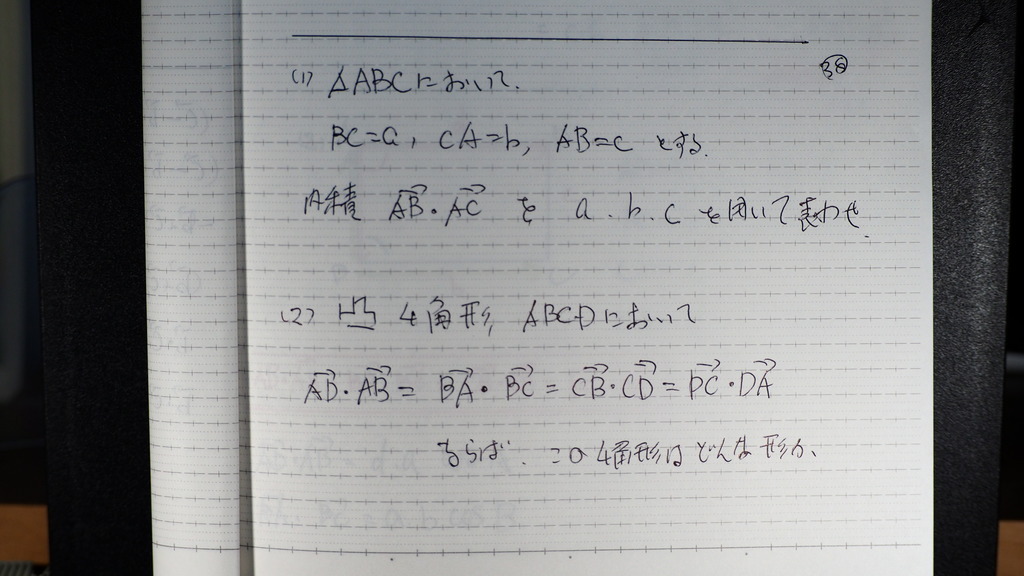 (1) △ABCにおいて.
BC=a, CA=b, AB=c とする.
内積 AB・AC を a.b.c を用いて表わせ.
(2) 凸4角形, ABCDにおいて
AD・AB= BA・BC = CB・CD = DC・DA
ならば. この4角形はどんな形か、